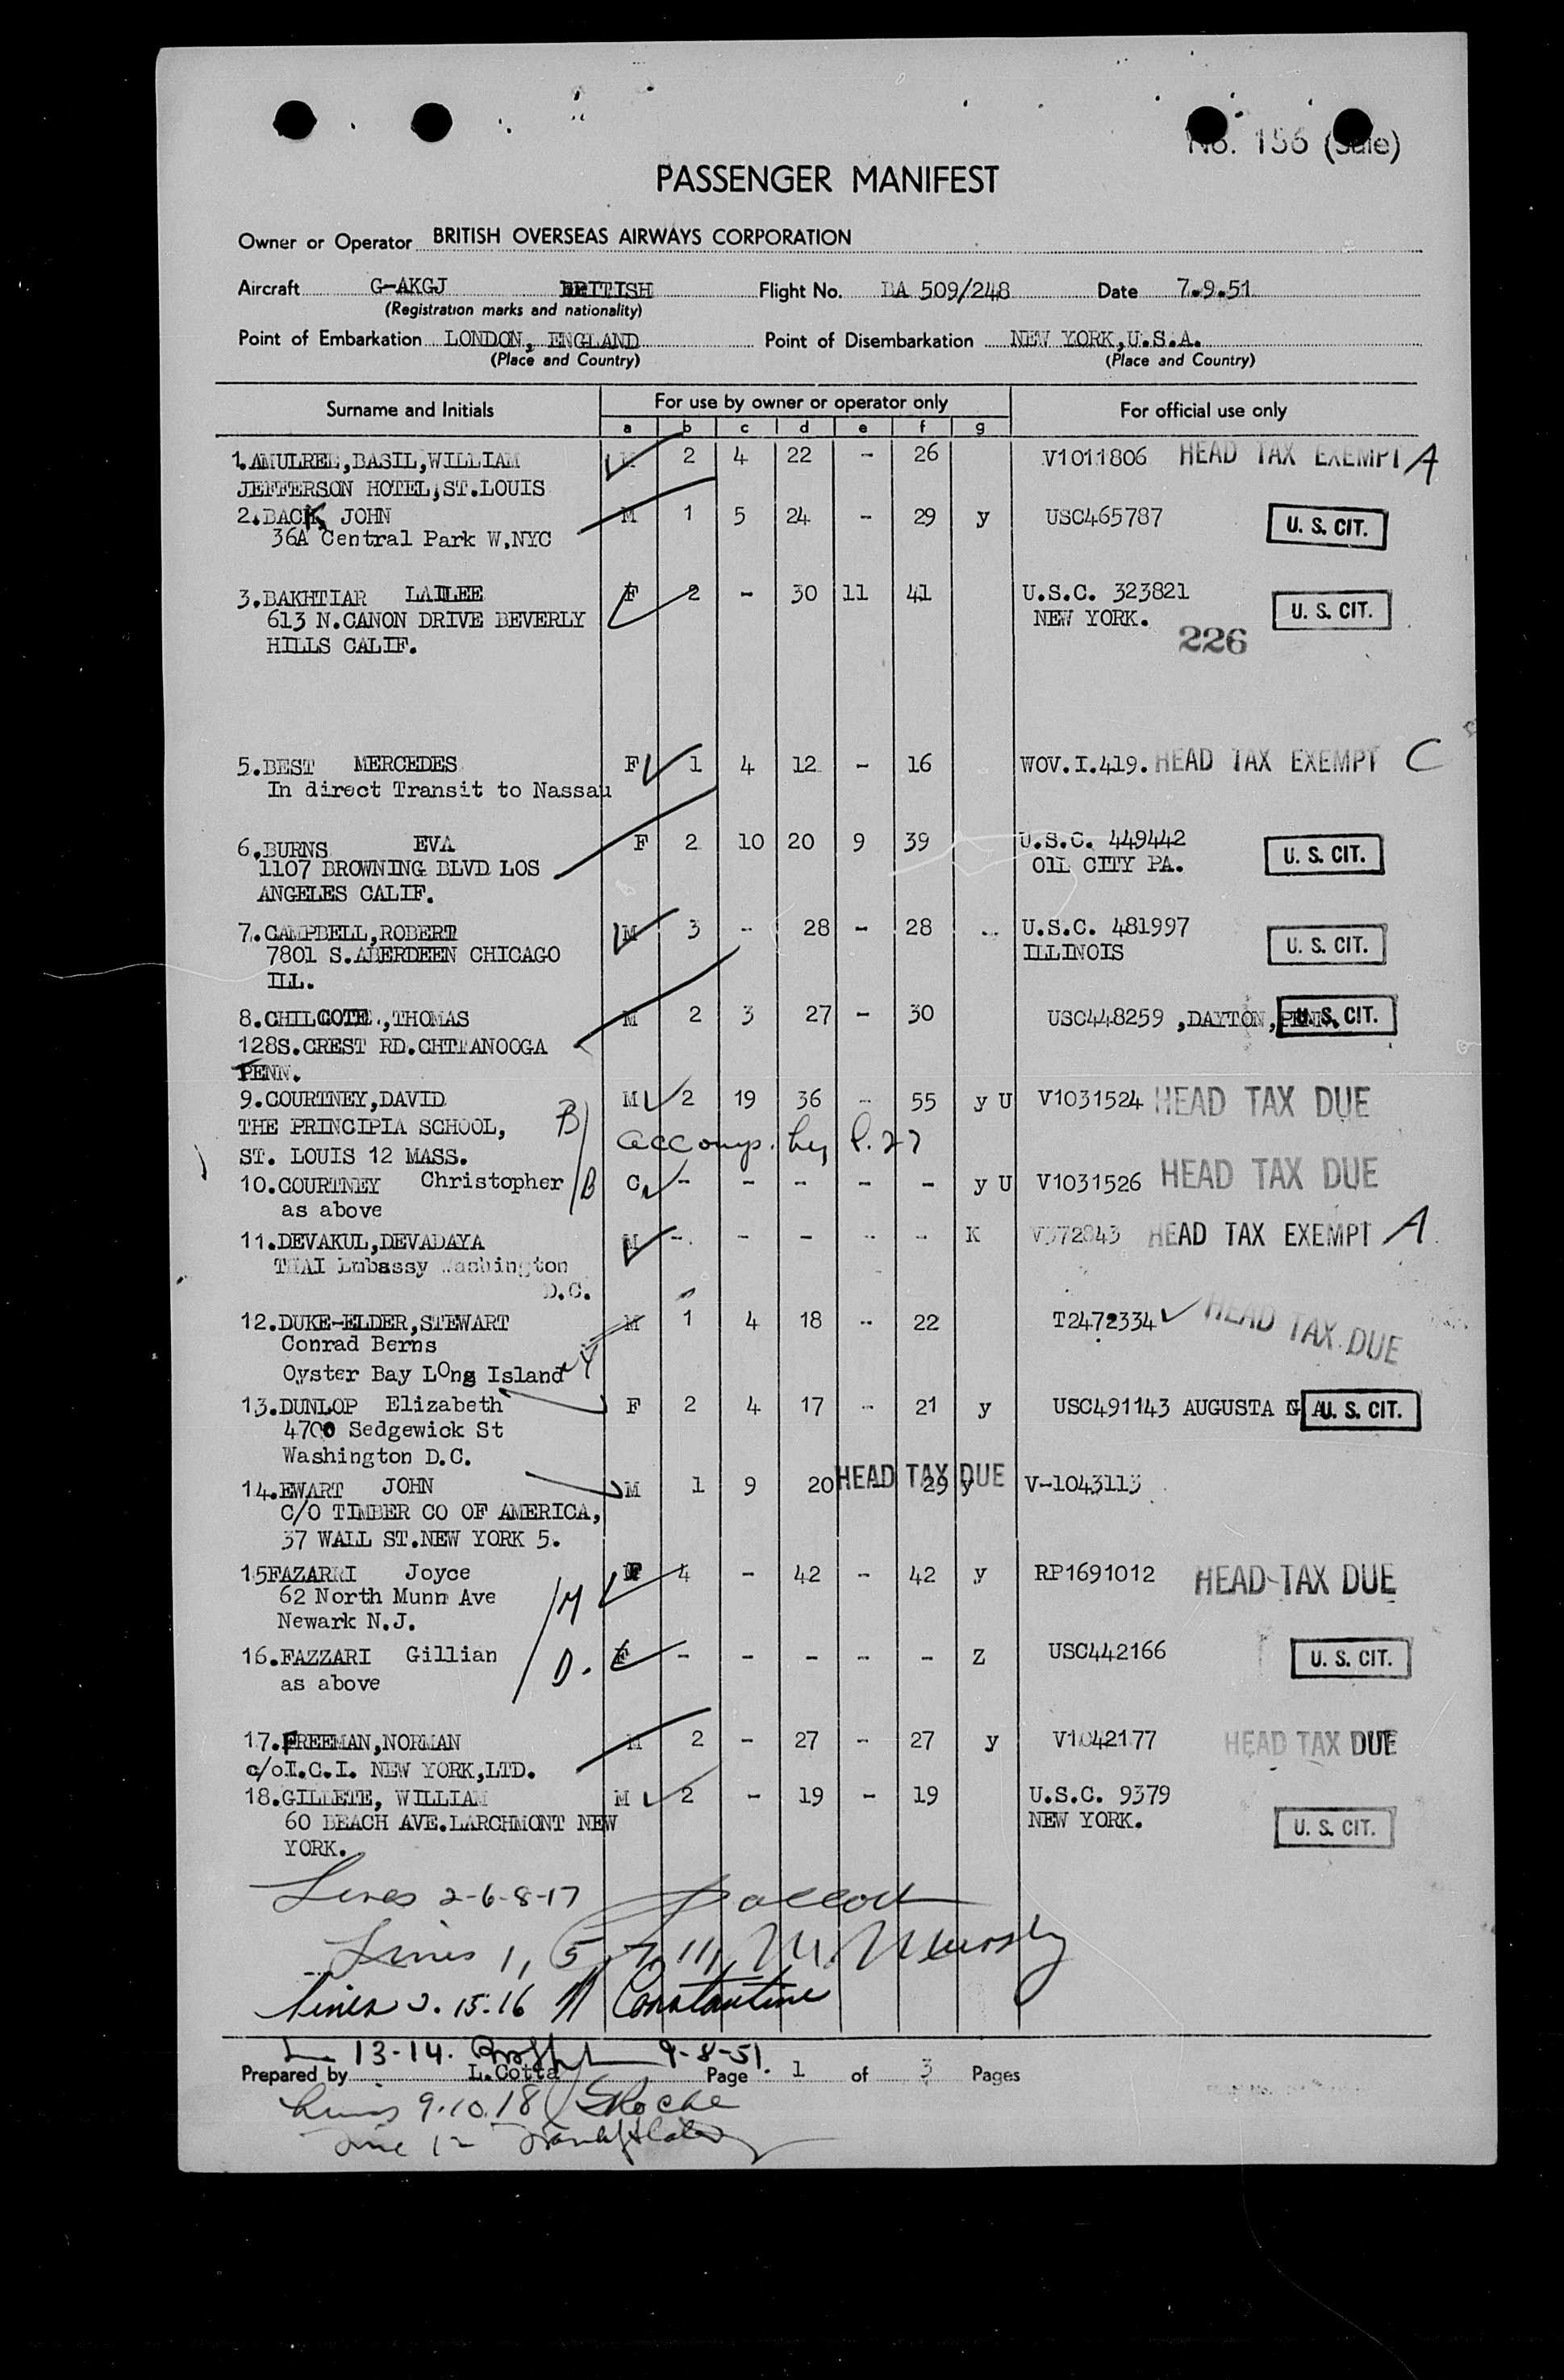 No. 156 (Sale)
PASSENGER MANIFEST
Owner or Operator BRITISH OVERSEAS AIRWAYS CORPORATION
Aircraft G-AKGJ BRITISH Flight No. BA 509/248 Date 7.9.51
(Registration marks and nationality)
Point of Embarkation LONDON, ENGLAND Point of Disembarkation NEW YORK,U.S.A.
(Place and Country) (Place and Country)
Surname and Initials For use by owner or operator only For official use only
a b c d e f g
1.AMULREE,BASIL,WILLIAM 2 4 22 - 26 V1011806 HEAD TAX EXEMPT A
JEFFERSON HOTEL,ST.LOUIS
2.BACK, JOHN M 1 5 24 - 29 y USC465787 U. S. CIT.
36A Central Park W.NYC
3.BAKHTIAR LAILEE F 2 - 30 11 41 U.S.C. 323821
613 N.CANON DRIVE BEVERLY NEW YORK. U. S. CIT.
HILLS CALIF. 226
5.BEST MERCEDES F 1 4 12 - 16 WOV.I.419. HEAD TAX EXEMPT C
In direct Transit to Nassau
6.BURNS EVA F 2 10 20 9 39 U.S.C. 449442
1107 BROWNING BLVD LOS OIL CITY PA. U. S. CIT.
ANGELES CALIF.
7.CAMPBELL,ROBERT M 3 - 28 - 28 U.S.C. 481997
7801 S.ABERDEEN CHICAGO ILLINOIS U. S. CIT.
ILL.
8.CHILCOTE.,THOMAS M 2 3 27 - 30 USC448259 ,DAYTON, U. S. CIT.
128S.CREST RD.CHTTANOOGA
PENN.
9.COURTNEY,DAVID M 2 19 36 - 55 y U V1031524 HEAD TAX DUE
THE PRINCIPIA SCHOOL, B accomp. by P.27
ST. LOUIS 12 MASS.
10.COURTNEY Christopher B C - - - - - y U V1031526 HEAD TAX DUE
as above
11.DEVAKUL,DEVADAYA M - - - - - K V372843 HEAD TAX EXEMPT A
THAI Embassy Washington
D.C.
12.DUKE-ELDER,STEWART M 1 4 18 - 22 T2472334 HEAD TAX DUE
Conrad Berns
Oyster Bay LOng Island
13.DUNLOP Elizabeth F 2 4 17 - 21 y USC491143 AUGUSTA G A U. S. CIT.
4700 Sedgewick St
Washington D.C.
14.EWART JOHN M 1 9 20 - 29 y HEAD TAX DUE V-1043113
C/O TIMBER CO OF AMERICA,
37 WALL ST.NEW YORK 5.
15FAZARRI Joyce F 4 - 42 - 42 y RP1691012 HEAD TAX DUE
62 North Munn Ave M
Newark N.J.
16.FAZZARI Gillian D. F - - - - - Z USC442166 U. S. CIT.
as above
17.FREEMAN,NORMAN M 2 - 27 - 27 y V1042177 HEAD TAX DUE
c/oI.C.I. NEW YORK,LTD.
18.GILLETE, WILLIAM M 2 - 19 - 19 U.S.C. 9379
60 BEACH AVE.LARCHMONT NEW NEW YORK. U. S. CIT.
YORK.
Lines 2-6-8-17
Lines 1, 5, 7, 11,
Lines 3. 15.16 Constantine
13-14. 9-8-51.
Prepared by L.Cotta Page 1 of 3 Pages
Lines 9.10.18 Roche
Line 12